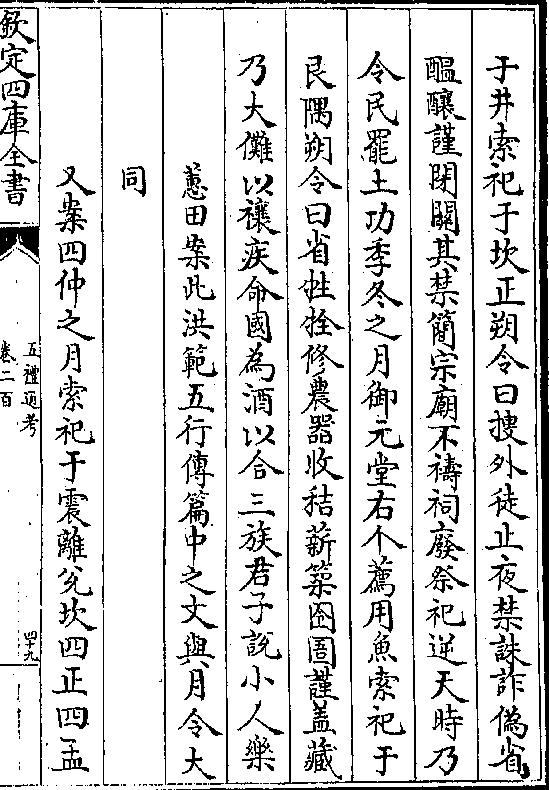 于井索祀于坎正朔令曰搜外徒止夜禁誅詐偽省
醖釀謹閉關其禁簡宗廟不禱祠廢祭祀逆天時乃
令民罷土功季冬之月御元堂右个薦用魚索祀于
艮隅朔令曰省牲牷修農器收秸薪築囹圄謹盖藏
乃大儺以禳疾命國為酒以合三族君子說小人樂
蕙田案此洪範五行傳篇中之文與月令大
同
又案四仲之月索祀于震離兊坎四正四孟
欽定四庫全書
五禮通考
卷二百
四十九